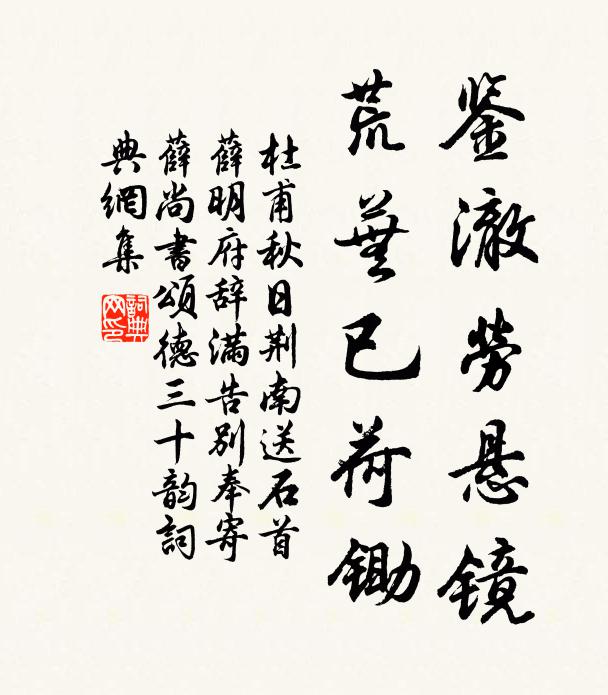 鉴澈劳悬镜
荒芜已荷锄
杜甫秋日荆南送石首
薛明府辞满告别奉寄
薛尚书颂德三十韵詞
典網集
詞典
网印